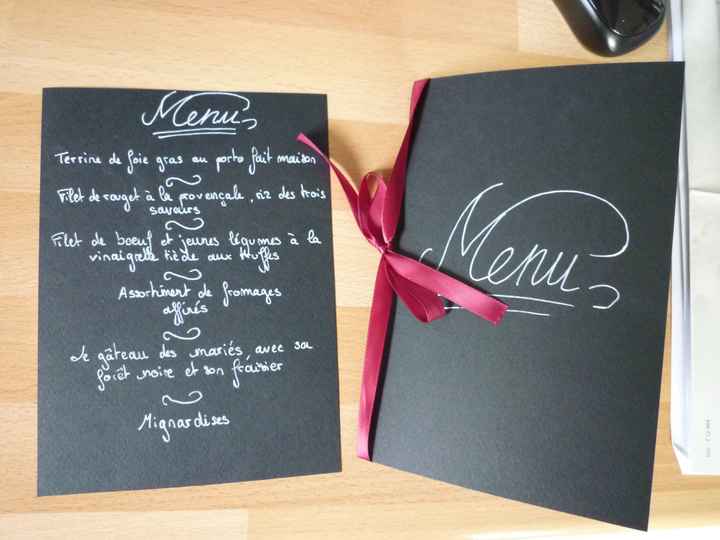 Menu
Terrine de foie gras au porto fait maison
Filet de rouget à la provençale, riz des trois
saveurs
Filet de boeuf et jeunes légumes à la
vinaigrette tiède aux truffes
Assortiment de fromages
affinés
Le gâteau des mariés, avec sa
forêt noire et son fraisier
Mignardises
Menu